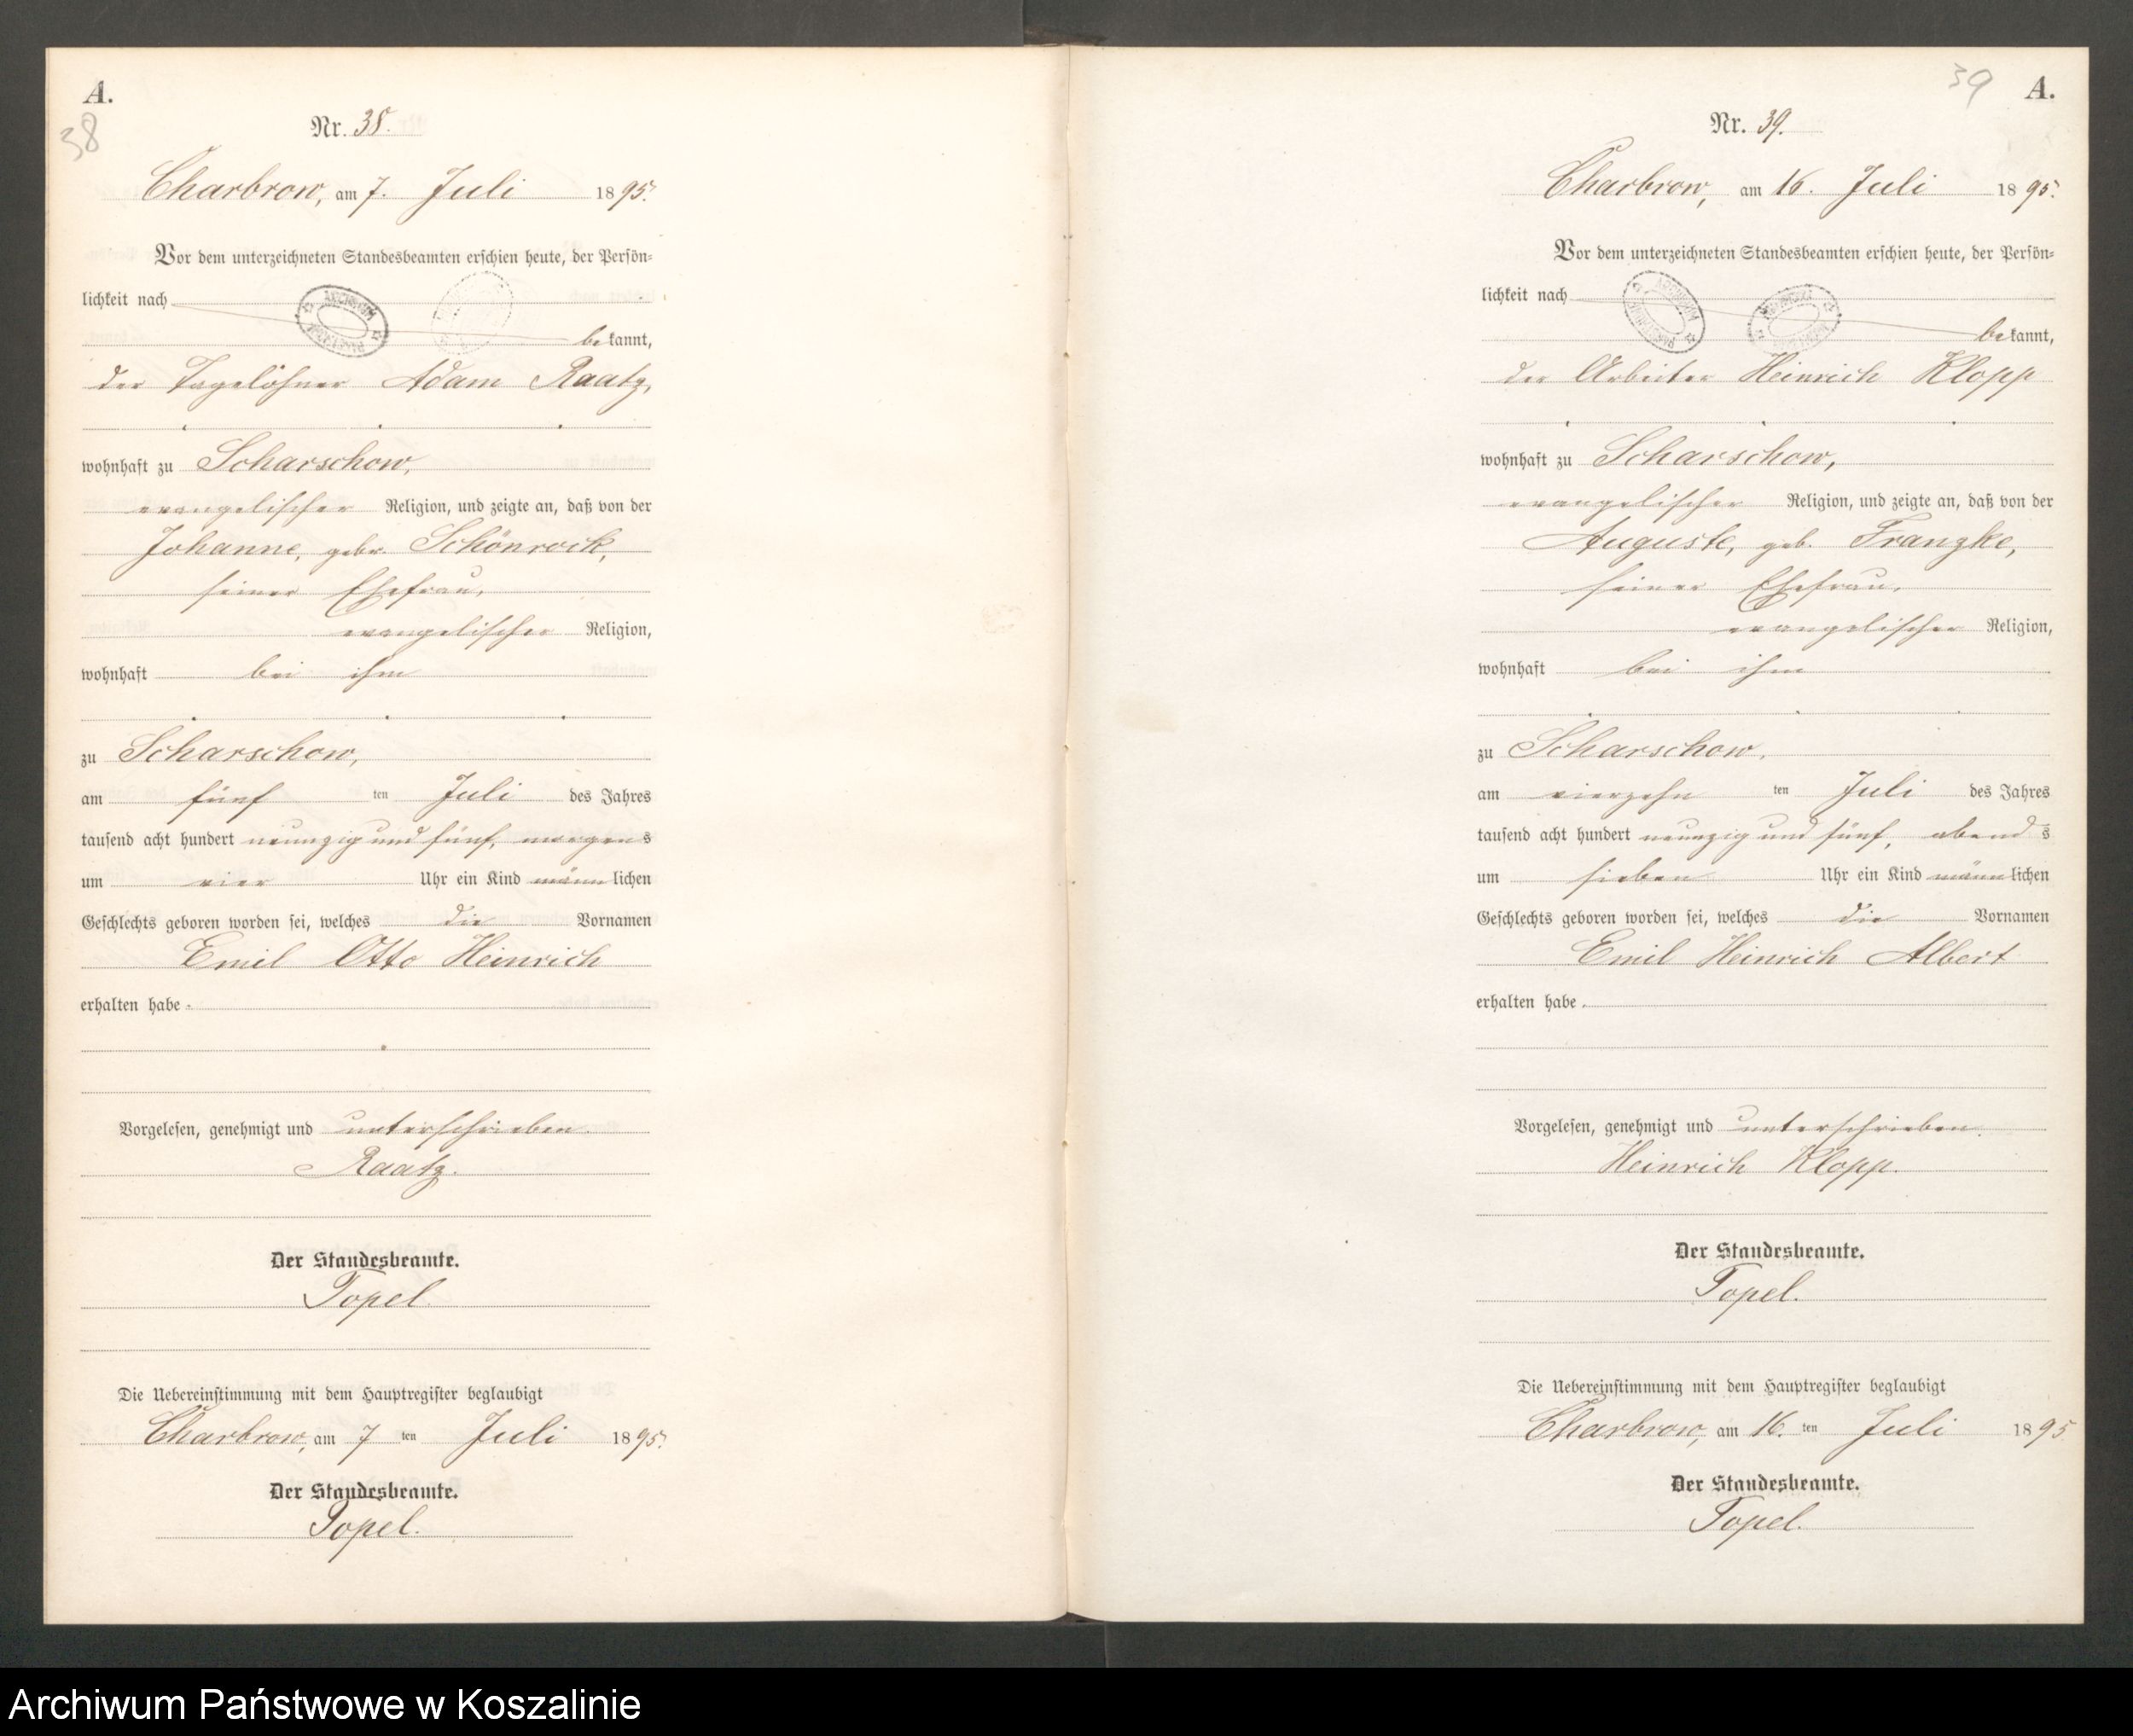 A.
38
Nr. 38.
Charbrow, am 7. Juli 1895.
Vor dem unterzeichneten Standesbeamten erschien heute, der Persön-
lichkeit nach
bekannt,
der Tagelöhner Adam Raatz,
wohnhaft zu Scharschow,
evangelischer Religion, und zeigte an, daß von der
Johanne, geb. Schönrock,
seiner Ehefrau,
evangelischer Religion,
wohnhaft bei ihm
zu Scharschow,
am fünf ten Juli des Jahres
tausend acht hundert neunzig und fünf, morgens
um vier Uhr ein Kind männlichen
Geschlechts geboren worden sei, welches die Vornamen
Emil Otto Heinrich
erhalten habe.
Vorgelesen, genehmigt und unterschrieben.
Raatz.
Der Standesbeamte.
Topel.
Die Uebereinstimmung mit dem Hauptregister beglaubigt
Charbrow, am 7 ten Juli 1895.
Der Standesbeamte.
Topel.
39 A.
Nr. 39.
Charbrow, am 16. Juli 1895.
Vor dem unterzeichneten Standesbeamten erschien heute, der Persön-
lichkeit nach
bekannt,
der Arbeiter Heinrich Klopp
wohnhaft zu Scharschow,
evangelischer Religion, und zeigte an, daß von der
Auguste, geb. Franzke,
seiner Ehefrau,
evangelischer Religion,
wohnhaft bei ihm
zu Scharschow,
am vierzehn ten Juli des Jahres
tausend acht hundert neunzig und fünf, abends
um sieben Uhr ein Kind männlichen
Geschlechts geboren worden sei, welches die Vornamen
Emil Heinrich Albert
erhalten habe.
Vorgelesen, genehmigt und unterschrieben.
Heinrich Klopp.
Der Standesbeamte.
Topel.
Die Uebereinstimmung mit dem Hauptregister beglaubigt
Charbrow, am 16. ten Juli 1895
Der Standesbeamte.
Topel.
Archiwum Państwowe w Koszalinie